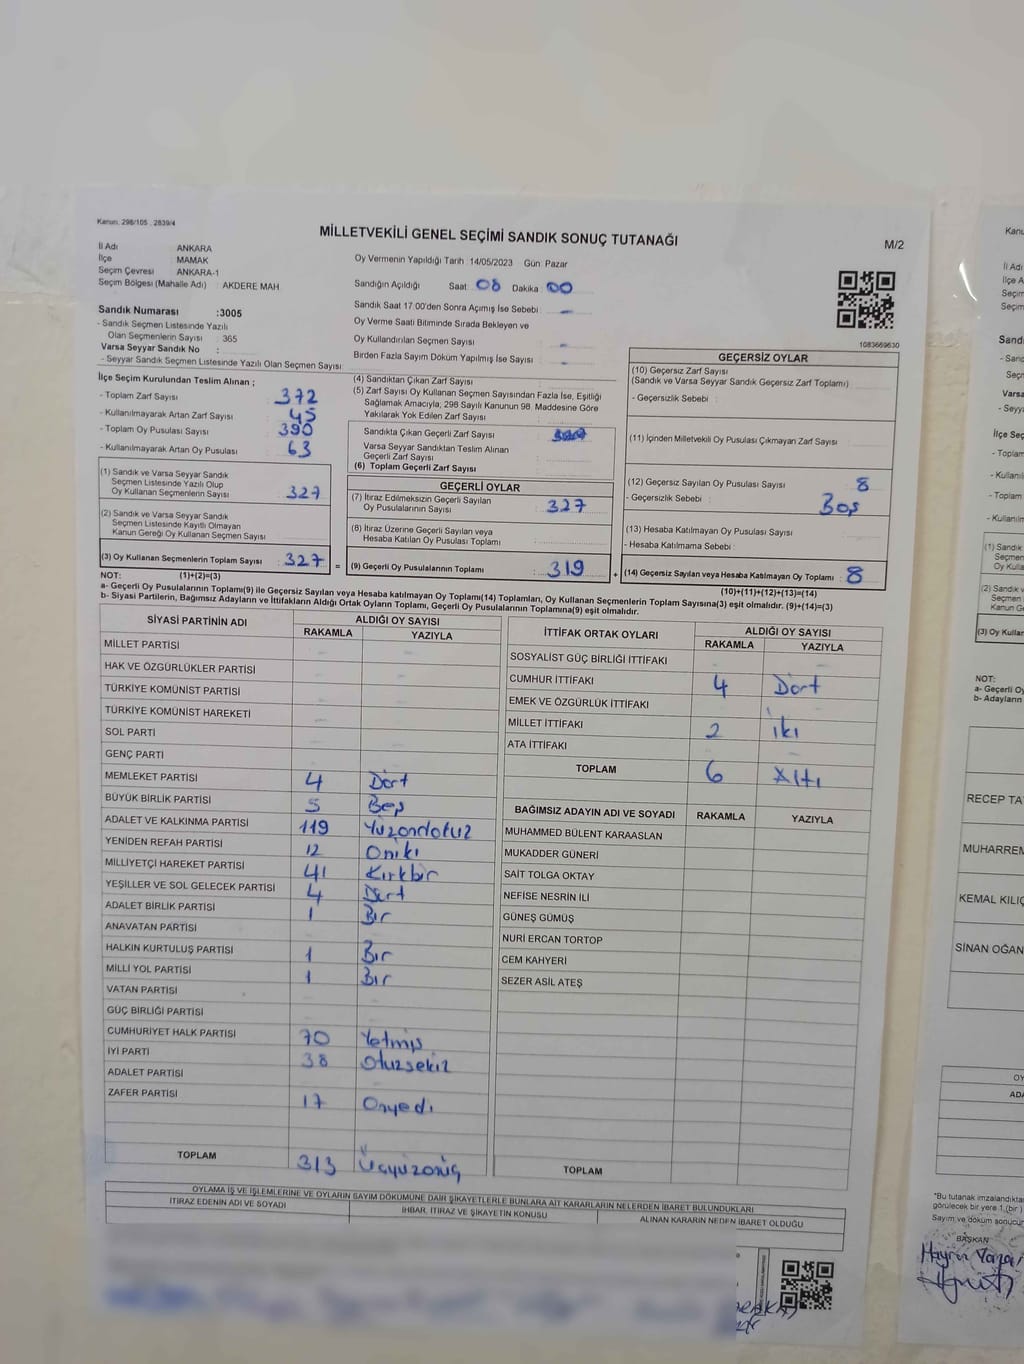 Kanun: 298/105 , 2839/4
MİLLETVEKİLİ GENEL SEÇİMİ SANDIK SONUÇ TUTANAĞI
M/2
İl Adı ANKARA
İlçe MAMAK
Seçim Çevresi ANKARA-1
Seçim Bölgesi (Mahalle Adı) : AKDERE MAH
Oy Vermenin Yapıldığı Tarih 14/05/2023 Gün: Pazar
Sandığın Açıldığı Saat: 08 Dakika: 00
Sandık Saat 17:00'den Sonra Açımış İse Sebebi: -
Oy Verme Saati Bitiminde Sırada Bekleyen ve
Oy Kullandırılan Seçmen Sayısı -
Birden Fazla Sayım Döküm Yapılmış İse Sayısı -
1083669630
Sandık Numarası :3005
- Sandık Seçmen Listesinde Yazılı
Olan Seçmenlerin Sayısı : 365
Varsa Seyyar Sandık No :
- Seyyar Sandık Seçmen Listesinde Yazılı Olan Seçmen Sayısı
İlçe Seçim Kurulundan Teslim Alınan ;
- Toplam Zarf Sayısı : 372
- Kullanılmayarak Artan Zarf Sayısı : 45
- Toplam Oy Pusulası Sayısı : 390
- Kullanılmayarak Artan Oy Pusulası : 63
(1) Sandık ve Varsa Seyyar Sandık
Seçmen Listesinde Yazılı Olup
Oy Kullanan Seçmenlerin Sayısı : 327
(2) Sandık ve Varsa Seyyar Sandık
Seçmen Listesinde Kayıtlı Olmayan
Kanun Gereği Oy Kullanan Seçmen Sayısı
(3) Oy Kullanan Seçmenlerin Toplam Sayısı : 327
(1)+(2)=(3)
(4) Sandıktan Çıkan Zarf Sayısı
(5) Zarf Sayısı Oy Kullanan Seçmen Sayısından Fazla İse, Eşitliği
Sağlamak Amacıyla, 298 Sayılı Kanunun 98. Maddesine Göre
Yakılarak Yok Edilen Zarf Sayısı
Sandıkta Çıkan Geçerli Zarf Sayısı
Varsa Seyyar Sandıktan Teslim Alınan
Geçerli Zarf Sayısı
(6) Toplam Geçerli Zarf Sayısı
GEÇERLİ OYLAR
(7) İtiraz Edilmeksizin Geçerli Sayılan
Oy Pusulalarının Sayısı : 327
(8) İtiraz Üzerine Geçerli Sayılan veya
Hesaba Katılan Oy Pusulası Toplamı
= (9) Geçerli Oy Pusulalarının Toplamı : 319
GEÇERSİZ OYLAR
(10) Geçersiz Zarf Sayısı
(Sandık ve Varsa Seyyar Sandık Geçersiz Zarf Toplamı)
- Geçersizlik Sebebi :
(11) İçinden Milletvekili Oy Pusulası Çıkmayan Zarf Sayısı
(12) Geçersiz Sayılan Oy Pusulası Sayısı 8
- Geçersizlik Sebebi : Boş
(13) Hesaba Katılmayan Oy Pusulası Sayısı
- Hesaba Katılmama Sebebi :
+ (14) Geçersiz Sayılan veya Hesaba Katılmayan Oy Toplamı : 8
(10)+(11)+(12)+(13)=(14)
NOT:
a- Geçerli Oy Pusulalarının Toplamı(9) ile Geçersiz Sayılan veya Hesaba Katılmayan Oy Toplamı(14) Toplamları, Oy Kullanan Seçmenlerin Toplam Sayısına(3) eşit olmalıdır. (9)+(14)=(3)
b- Siyasi Partilerin, Bağımsız Adayların ve İttifakların Aldığı Ortak Oyların Toplamı, Geçerli Oy Pusulalarının Toplamına(9) eşit olmalıdır.
SİYASİ PARTİNİN ADI ALDIĞI OY SAYISI
RAKAMLA YAZIYLA
MİLLET PARTİSİ - -
HAK VE ÖZGÜRLÜKLER PARTİSİ
TÜRKİYE KOMÜNİST PARTİSİ
TÜRKİYE KOMÜNİST HAREKETİ
SOL PARTİ
GENÇ PARTİ
MEMLEKET PARTİSİ 4 Dört
BÜYÜK BİRLİK PARTİSİ 5 Beş
ADALET VE KALKINMA PARTİSİ 119 Yüzondokuz
YENİDEN REFAH PARTİSİ 12 Oniki
MİLLİYETÇİ HAREKET PARTİSİ 41 Kırkbir
YEŞİLLER VE SOL GELECEK PARTİSİ 4 Dört
ADALET BİRLİK PARTİSİ 1 Bir
ANAVATAN PARTİSİ
HALKIN KURTULUŞ PARTİSİ 1 Bir
MİLLİ YOL PARTİSİ 1 Bir
VATAN PARTİSİ
GÜÇ BİRLİĞİ PARTİSİ
CUMHURİYET HALK PARTİSİ 70 Yetmiş
İYİ PARTİ 38 Otuzsekiz
ADALET PARTİSİ
ZAFER PARTİSİ 17 Onyedi
TOPLAM 313 Üçyüzonüç
İTTİFAK ORTAK OYLARI ALDIĞI OY SAYISI
RAKAMLA YAZIYLA
SOSYALİST GÜÇ BİRLİĞİ İTTİFAKI
CUMHUR İTTİFAKI 4 Dört
EMEK VE ÖZGÜRLÜK İTTİFAKI
MİLLET İTTİFAKI 2 İki
ATA İTTİFAKI
TOPLAM 6 Altı
BAĞIMSIZ ADAYIN ADI VE SOYADI RAKAMLA YAZIYLA
MUHAMMED BÜLENT KARAASLAN
MUKADDER GÜNERİ
SAİT TOLGA OKTAY
NEFİSE NESRİN İLİ
GÜNEŞ GÜMÜŞ
NURİ ERCAN TORTOP
CEM KAHYERİ
SEZER ASİL ATEŞ
TOPLAM
OYLAMA İŞ VE İŞLEMLERİNE VE OYLARIN SAYIM DÖKÜMÜNE DAİR ŞİKAYETLERLE BUNLARA AİT KARARLARIN NELERDEN İBARET BULUNDUKLARI
İTİRAZ EDENİN ADI VE SOYADI İHBAR, İTİRAZ VE ŞİKAYETİN KONUSU ALINAN KARARIN NEDEN İBARET OLDUĞU
Kanu
İl Adı
İlçe A
Seçim
Seçim
Sandı
- Sanc
Seçr
Varsa
- Seyy
İlçe Seç
- Toplam
- Kullanılı
- Toplam
- Kullanılm
(1) Sandık
Seçmen
Oy Kulla
(2) Sandık v
Seçmen L
Kanun Ge
(3) Oy Kullar
NOT:
a- Geçerli Oy
b- Adayların
RECEP TA
MUHARREM
KEMAL KILIÇ
SİNAN OĞAN
OY
ADA
"Bu tutanak imzalandıkta
görülecek bir yere 1 (bir )
Sayım ve döküm sonucu
BAŞKAN